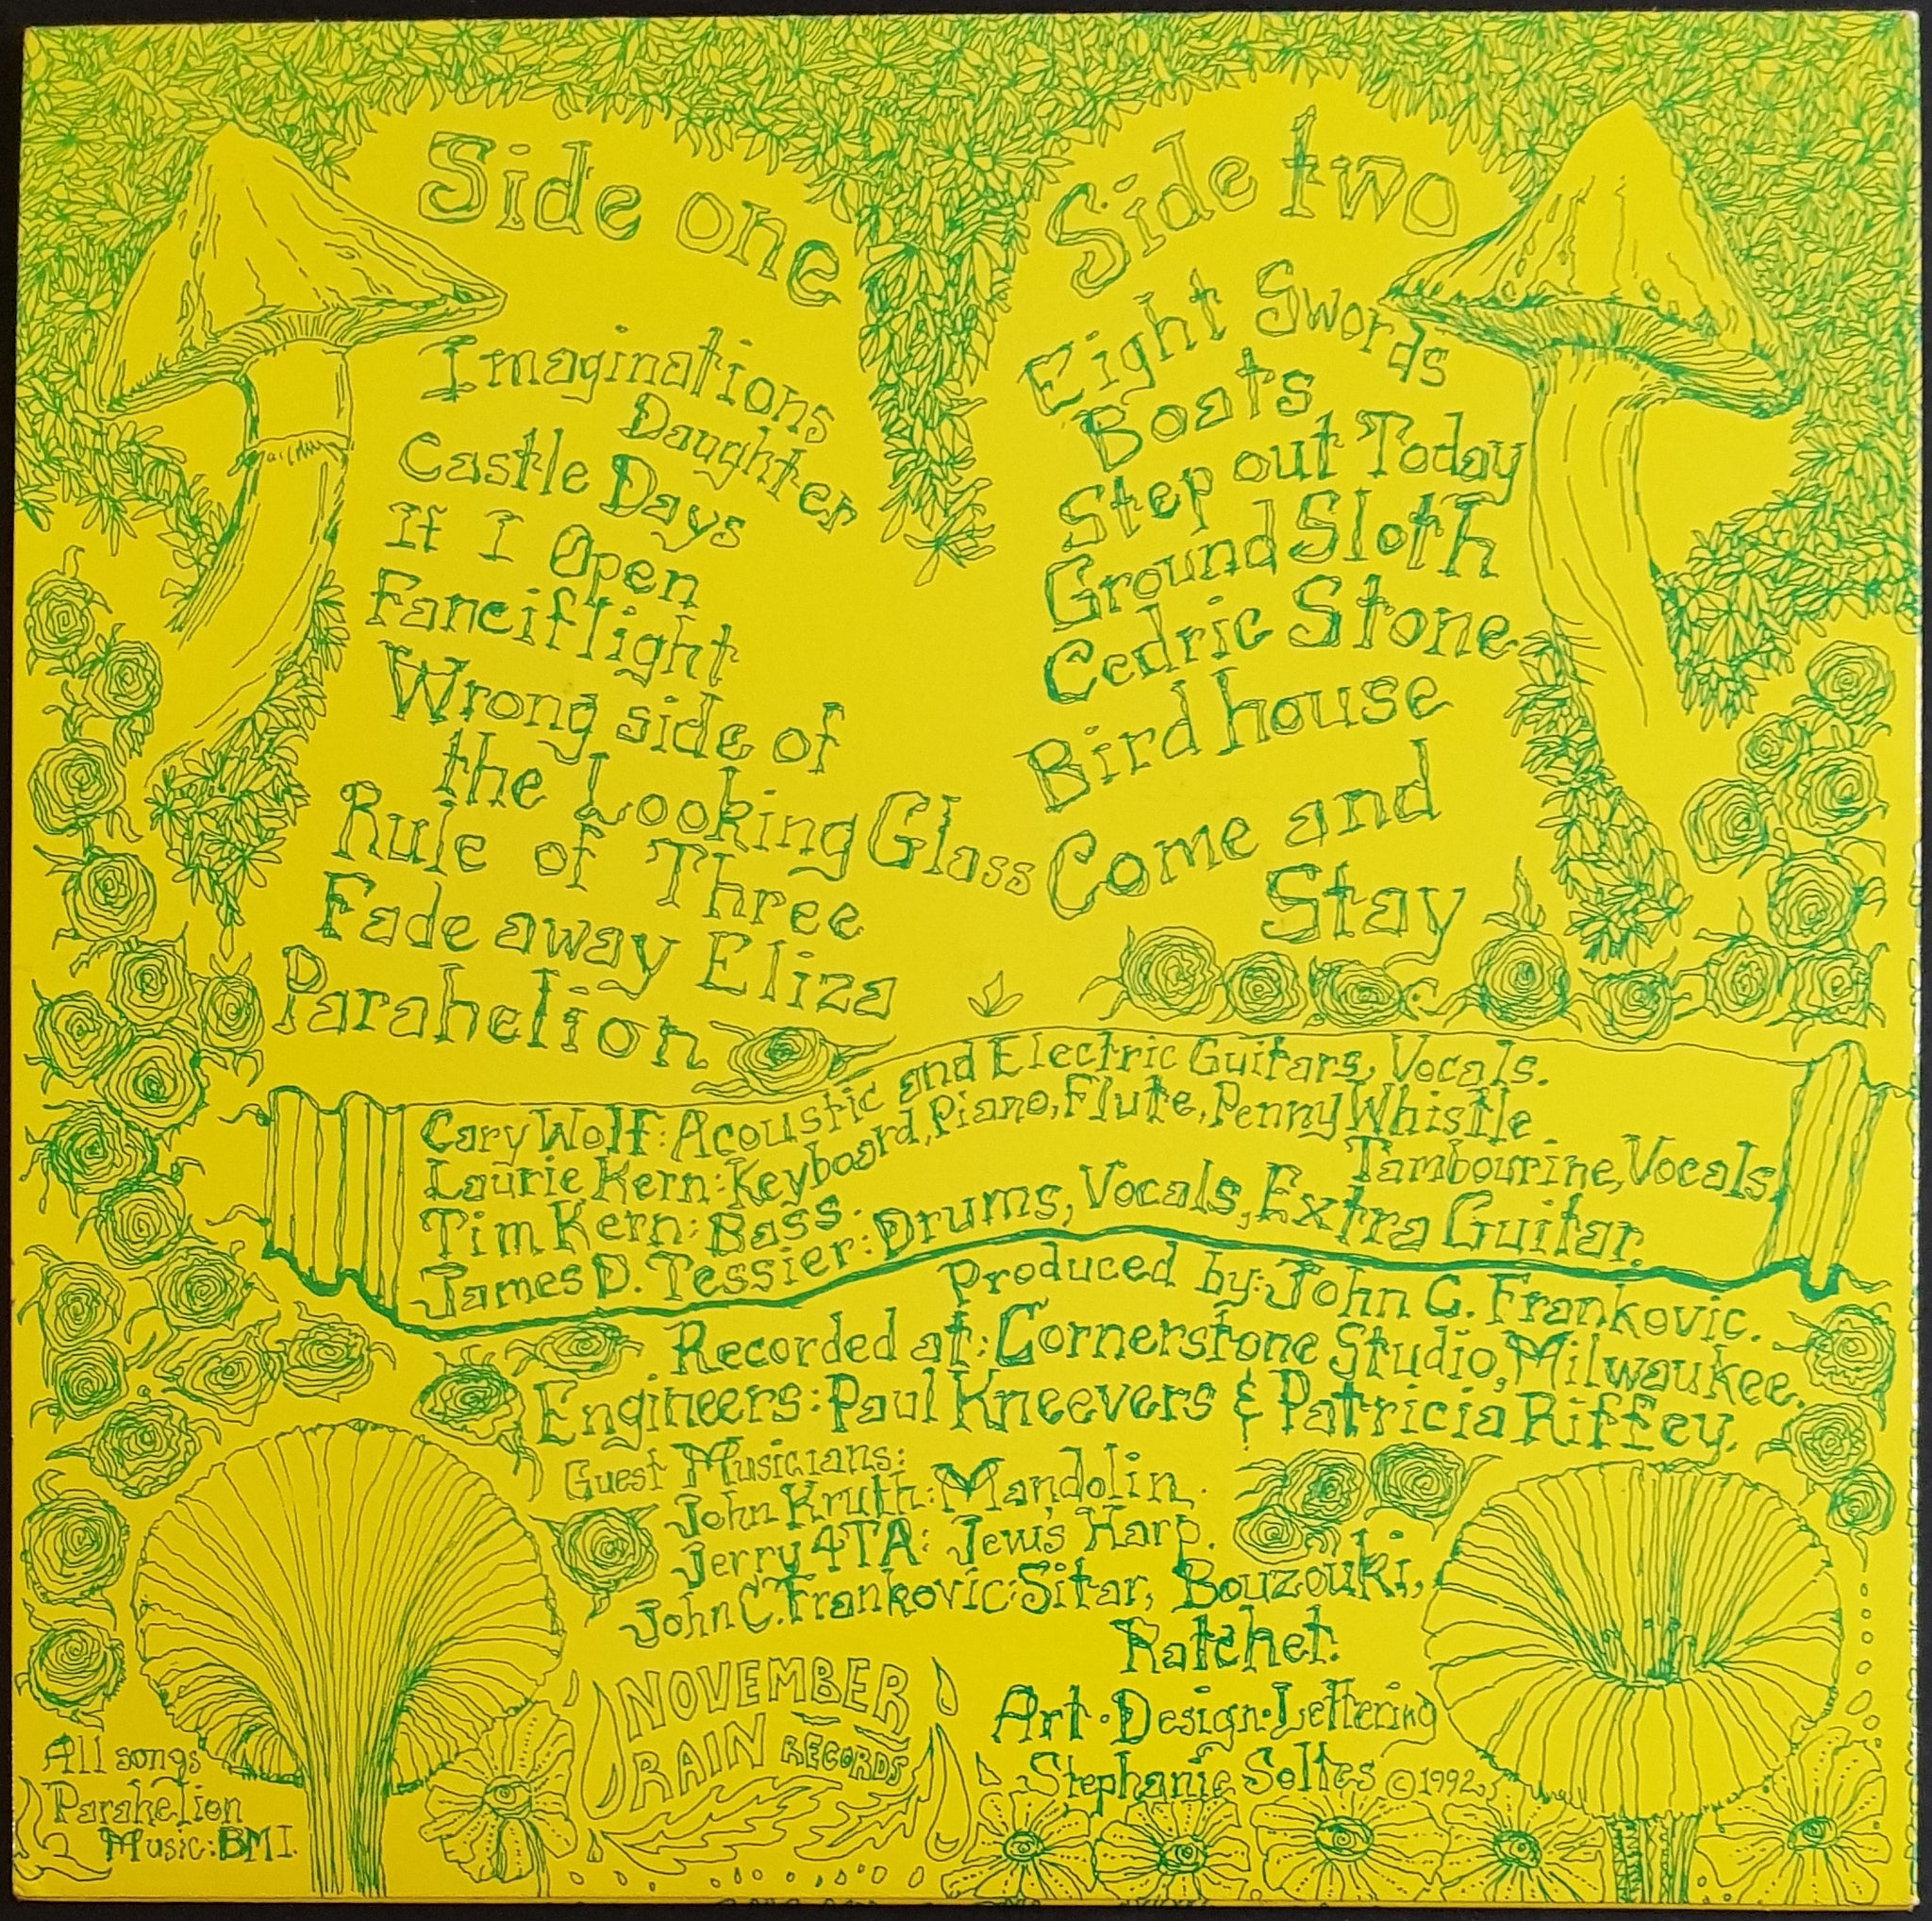 Side one
Imaginations
Daughter
Castle Days
If I Open
Fanciflight
Wrong side of
the Looking Glass
Rule of Three
Fade away Eliza
Parahelion
Side two
Eight Swords
Boats
Step out Today
Ground Sloth
Cedric Stone
Bird house
Come and
Stay
Cary Wolf: Acoustic and Electric Guitars, Vocals.
Laurie Kern: Keyboard, Piano, Flute, Penny Whistle
Tambourine, Vocals,
Tim Kern: Bass.
James D. Tessier: Drums, Vocals, Extra Guitar.
Produced by: John C. Frankovic.
Recorded at: Cornerstone Studio, Milwaukee.
Engineers: Paul Kneevers & Patricia Riffey.
Guest Musicians:
John Kruth: Mandolin.
Jerry 4TA: Jews Harp.
John C. Frankovic: Sitar, Bouzouki,
Ratchet.
NOVEMBER
RAIN RECORDS
Art · Design · Lettering
Stephanie Soltes © 1992
All songs
Parahelion
Music: BMI.